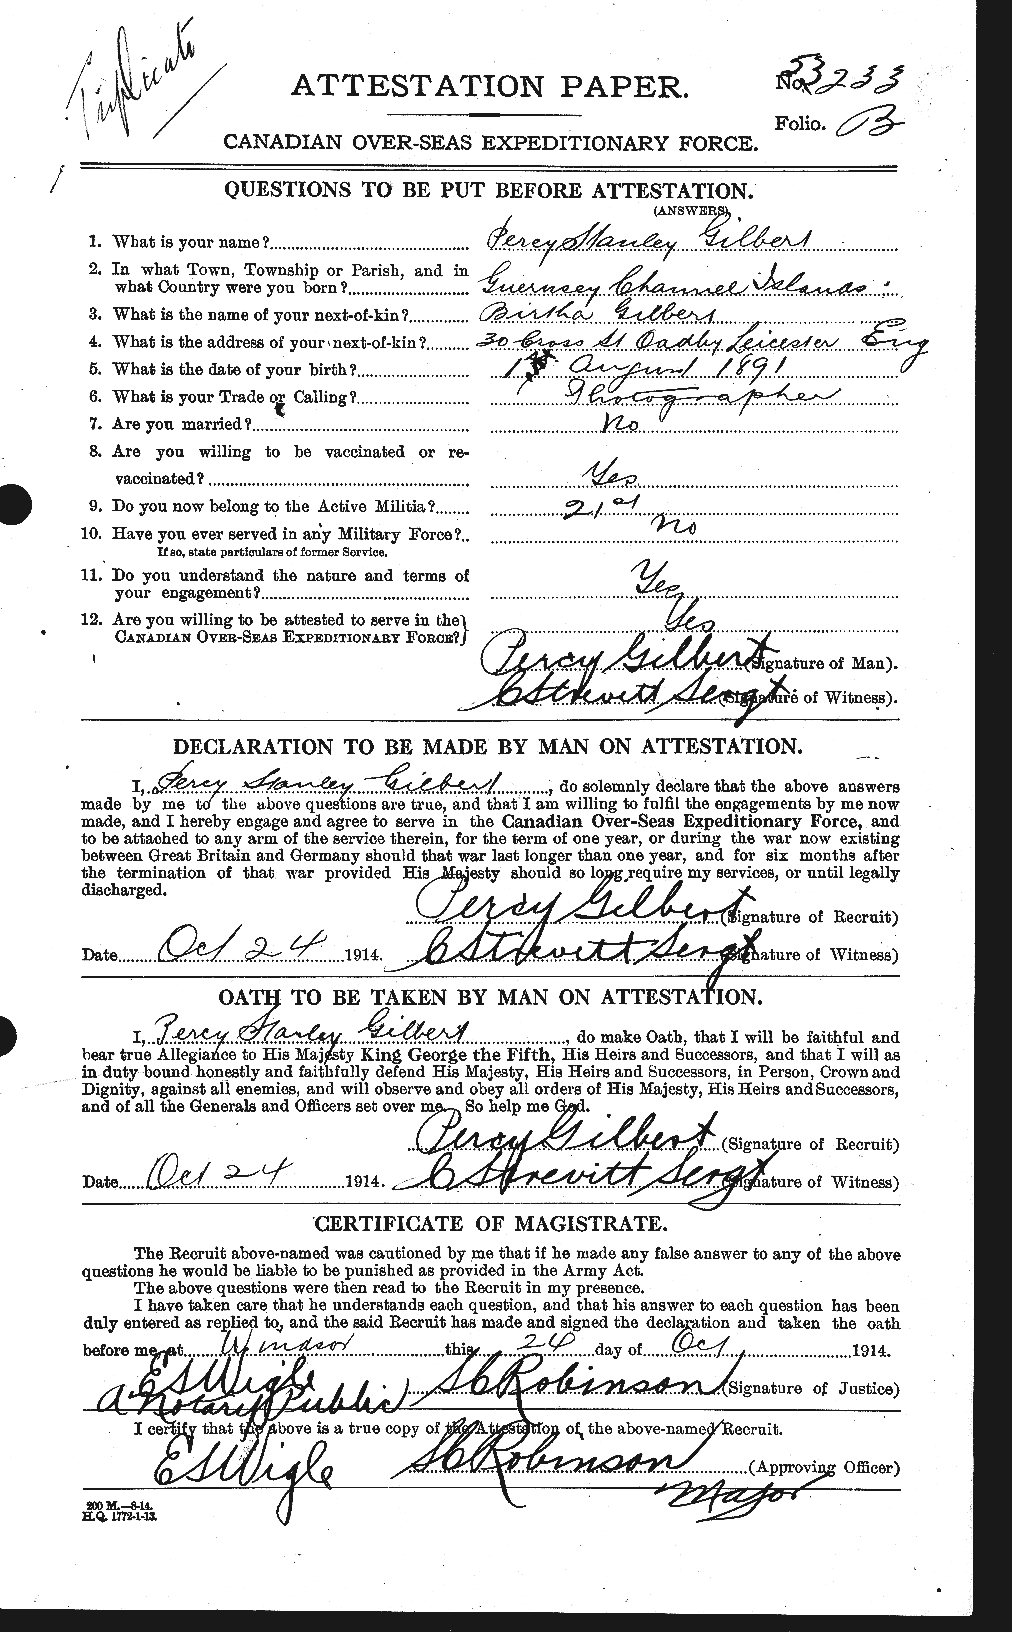 Triplicate
ATTESTATION PAPER.
No. 53233
Folio. B
CANADIAN OVER-SEAS EXPEDITIONARY FORCE.
QUESTIONS TO BE PUT BEFORE ATTESTATION.
(ANSWERS).
1. What is your name? Percy Stanley Gilbert
2. In what Town, Township or Parish, and in
what Country were you born? Guernsey Channel Islands
3. What is the name of your next-of-kin? Birtha Gilbert
4. What is the address of your next-of-kin? 30 Cross St Oadby Leicester Eng
5. What is the date of your birth? 1st August 1891
6. What is your Trade or Calling? Photographer
7. Are you married? No
8. Are you willing to be vaccinated or re-
vaccinated? Yes
9. Do you now belong to the Active Militia? 21st
10. Have you ever served in any Military Force? No
If so, state particulars of former Service.
11. Do you understand the nature and terms of
your engagement? Yes
12. Are you willing to be attested to serve in the
CANADIAN OVER-SEAS EXPEDITIONARY FORCE? Yes
Percy Gilbert (Signature of Man).
C Strevitt Sergt (Signature of Witness).
DECLARATION TO BE MADE BY MAN ON ATTESTATION.
I, Percy Stanley Gilbert, do solemnly declare that the above answers
made by me to the above questions are true, and that I am willing to fulfil the engagements by me now
made, and I hereby engage and agree to serve in the Canadian Over-Seas Expeditionary Force, and
to be attached to any arm of the service therein, for the term of one year, or during the war now existing
between Great Britain and Germany should that war last longer than one year, and for six months after
the termination of that war provided His Majesty should so long require my services, or until legally
discharged.
Percy Gilbert (Signature of Recruit)
Date Oct 24 1914. C Strevitt Sergt (Signature of Witness)
OATH TO BE TAKEN BY MAN ON ATTESTATION.
I, Percy Stanley Gilbert, do make Oath, that I will be faithful and
bear true Allegiance to His Majesty King George the Fifth, His Heirs and Successors, and that I will as
in duty bound honestly and faithfully defend His Majesty, His Heirs and Successors, in Person, Crown and
Dignity, against all enemies, and will observe and obey all orders of His Majesty, His Heirs and Successors,
and of all the Generals and Officers set over me. So help me God.
Percy Gilbert (Signature of Recruit)
Date Oct 24 1914. C Strevitt Sergt (Signature of Witness)
CERTIFICATE OF MAGISTRATE.
The Recruit above-named was cautioned by me that if he made any false answer to any of the above
questions he would be liable to be punished as provided in the Army Act.
The above questions were then read to the Recruit in my presence.
I have taken care that he understands each question, and that his answer to each question has been
duly entered as replied to, and the said Recruit has made and signed the declaration and taken the oath
before me, at Windsor this 24 day of Oct 1914.
E S Wigle S C Robinson (Signature of Justice)
A Notary Public
I certify that the above is a true copy of the Attestation of the above-named Recruit.
E S Wigle S C Robinson (Approving Officer)
Major
200 M.—8-14.
H.Q. 1772-1-13.